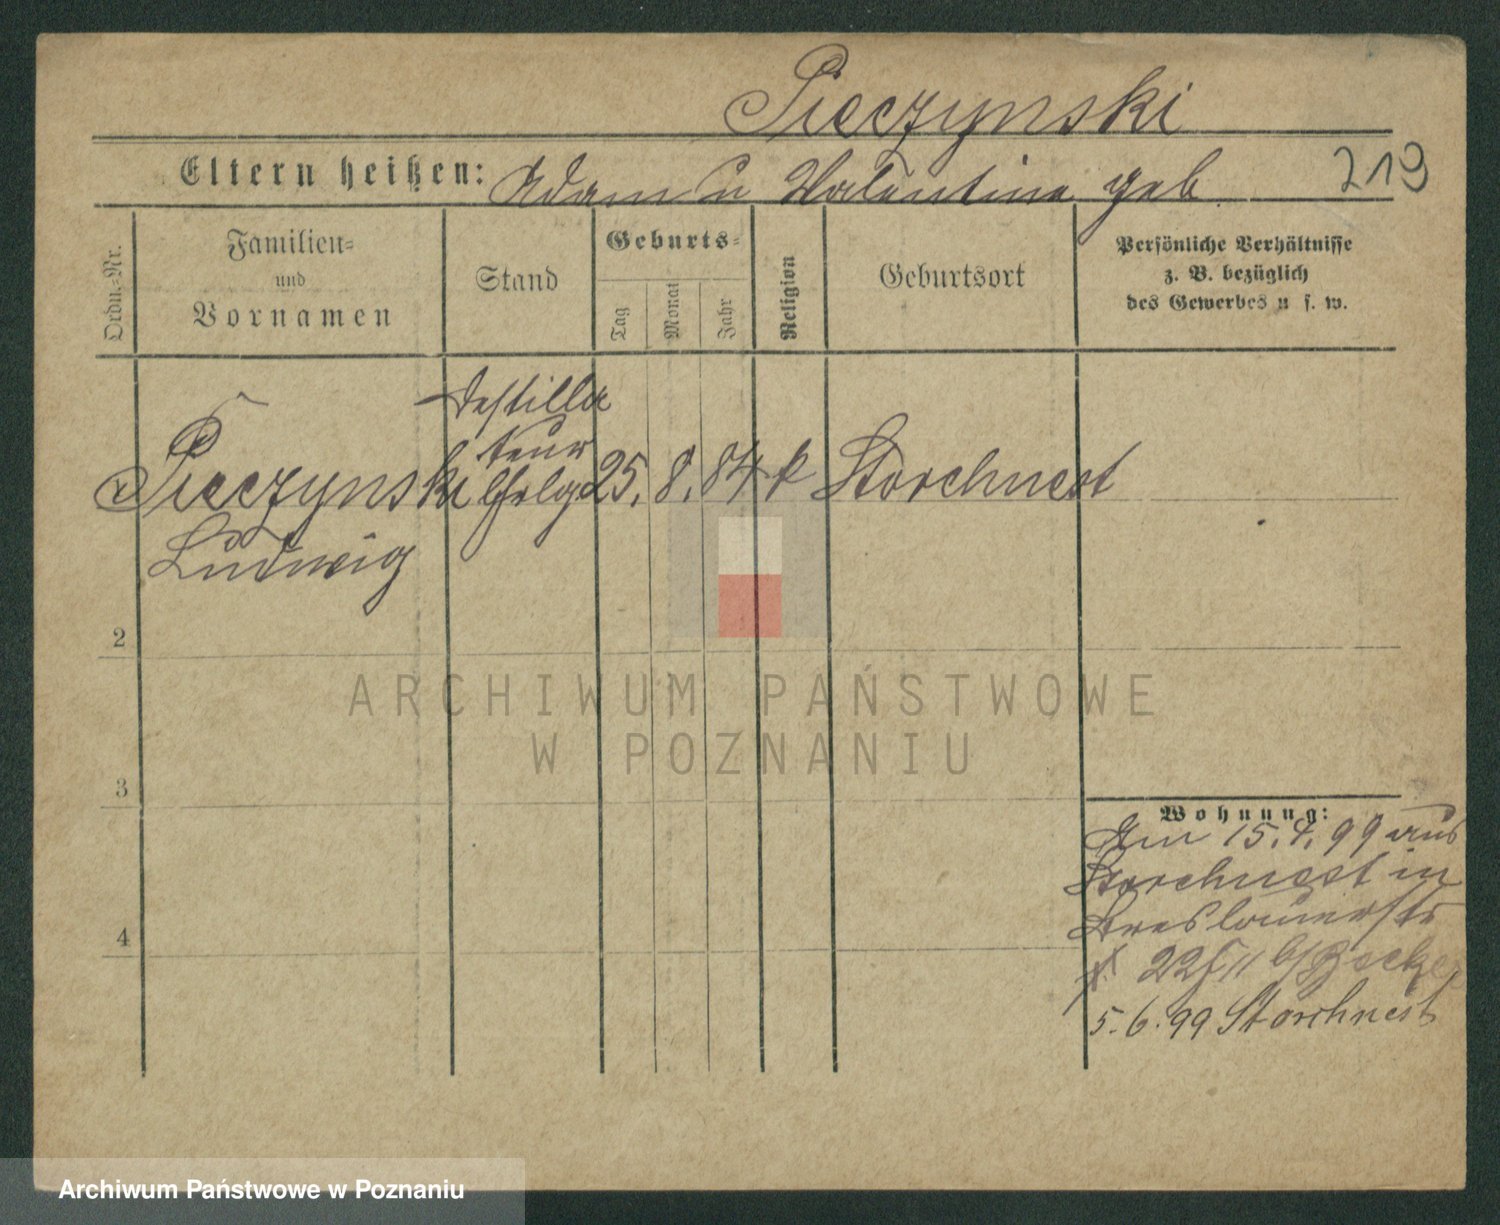 Pieczynski
Eltern heißen: Adam u Valentine geb. 219
Ordn.-Nr.
Familien-
und
Vornamen
Stand
Geburts-
Tag
Monat
Jahr
Religion
Geburtsort
Persönliche Verhältnisse
z. B. bezüglich
des Gewerbes u s. w.
Pieczynski
Ludwig
Destilla
teur
25. 8. 84 k Storchnest
2
3
4
Wohnung:
Am 15.4.99 aus
Storchnest in
Breslauerstr
5.6.99 Storchnest
ARCHIWUM PAŃSTWOWE
W POZNANIU
Archiwum Państwowe w Poznaniu